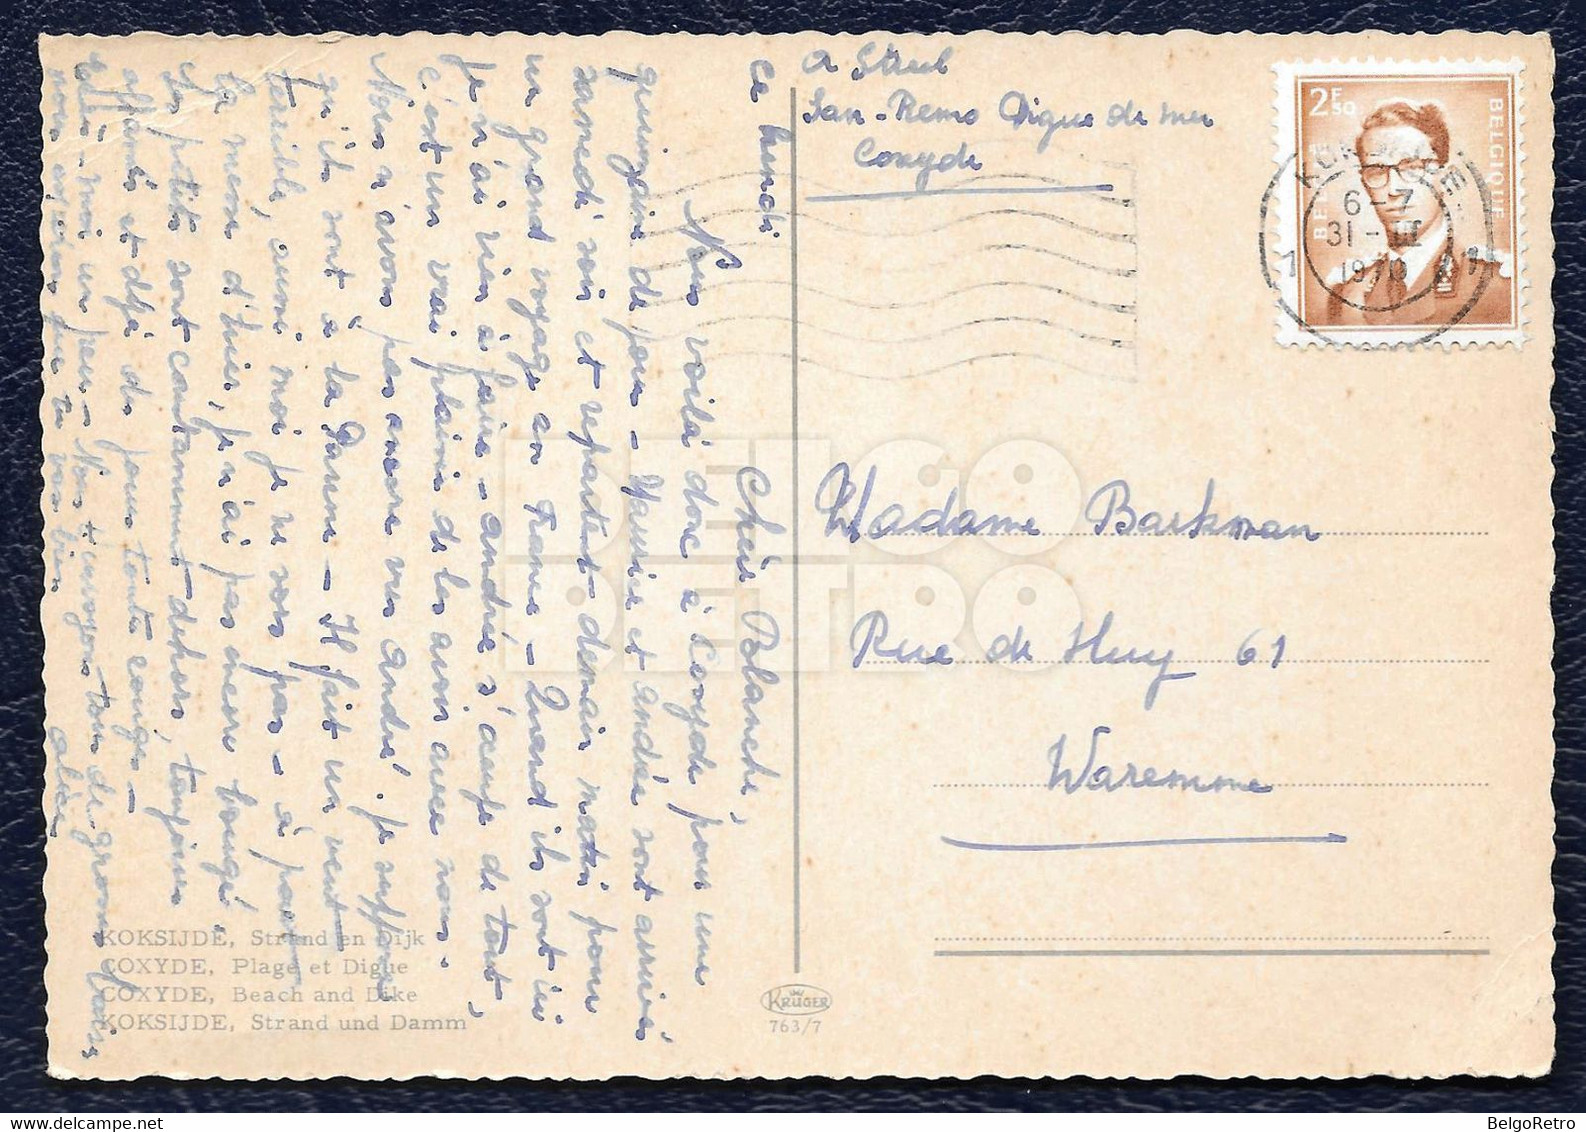 A Streel
San-Remo Digue de mer
Coxyde
2F50
BELGIQUE
BELGIË
KOKSIJDE
6-7
31-III
1970
1 1
ce lundi
Chère Blanche,
Nous voilà donc à Coxyde pour une
quinzaine de jours - Maurice et andrée sont arrivés
samedi soir et repartent demain matin pour
un grand voyage en France - Quand ils sont ici
je n'ai rien à faire - andrée s'occupe de tout,
c'est un vrai plaisir de les avoir avec nous.
Nous n'avons pas encore vu André. je suppose
qu'ils sont à la Panne - Il fait un vent
terrible, aussi moi je ne sors pas - à part
la messe d'hier, je n'ai pas encore bougé.
Les petits sont constamment dehors, toujours
affamés et déjà des joues toutes rouges -
écris-moi un peu - Nous t'envoyons tous de gros baisers
nous espérons que tu vas bien
alice
Madame Barkman
Rue de Huy 61
Waremme
KOKSIJDE, Strand en Dijk
COXYDE, Plage et Digue
COXYDE, Beach and Dike
KOKSIJDE, Strand und Damm
KRÜGER
763/7
BELGO
RETRO
BelgoRetro